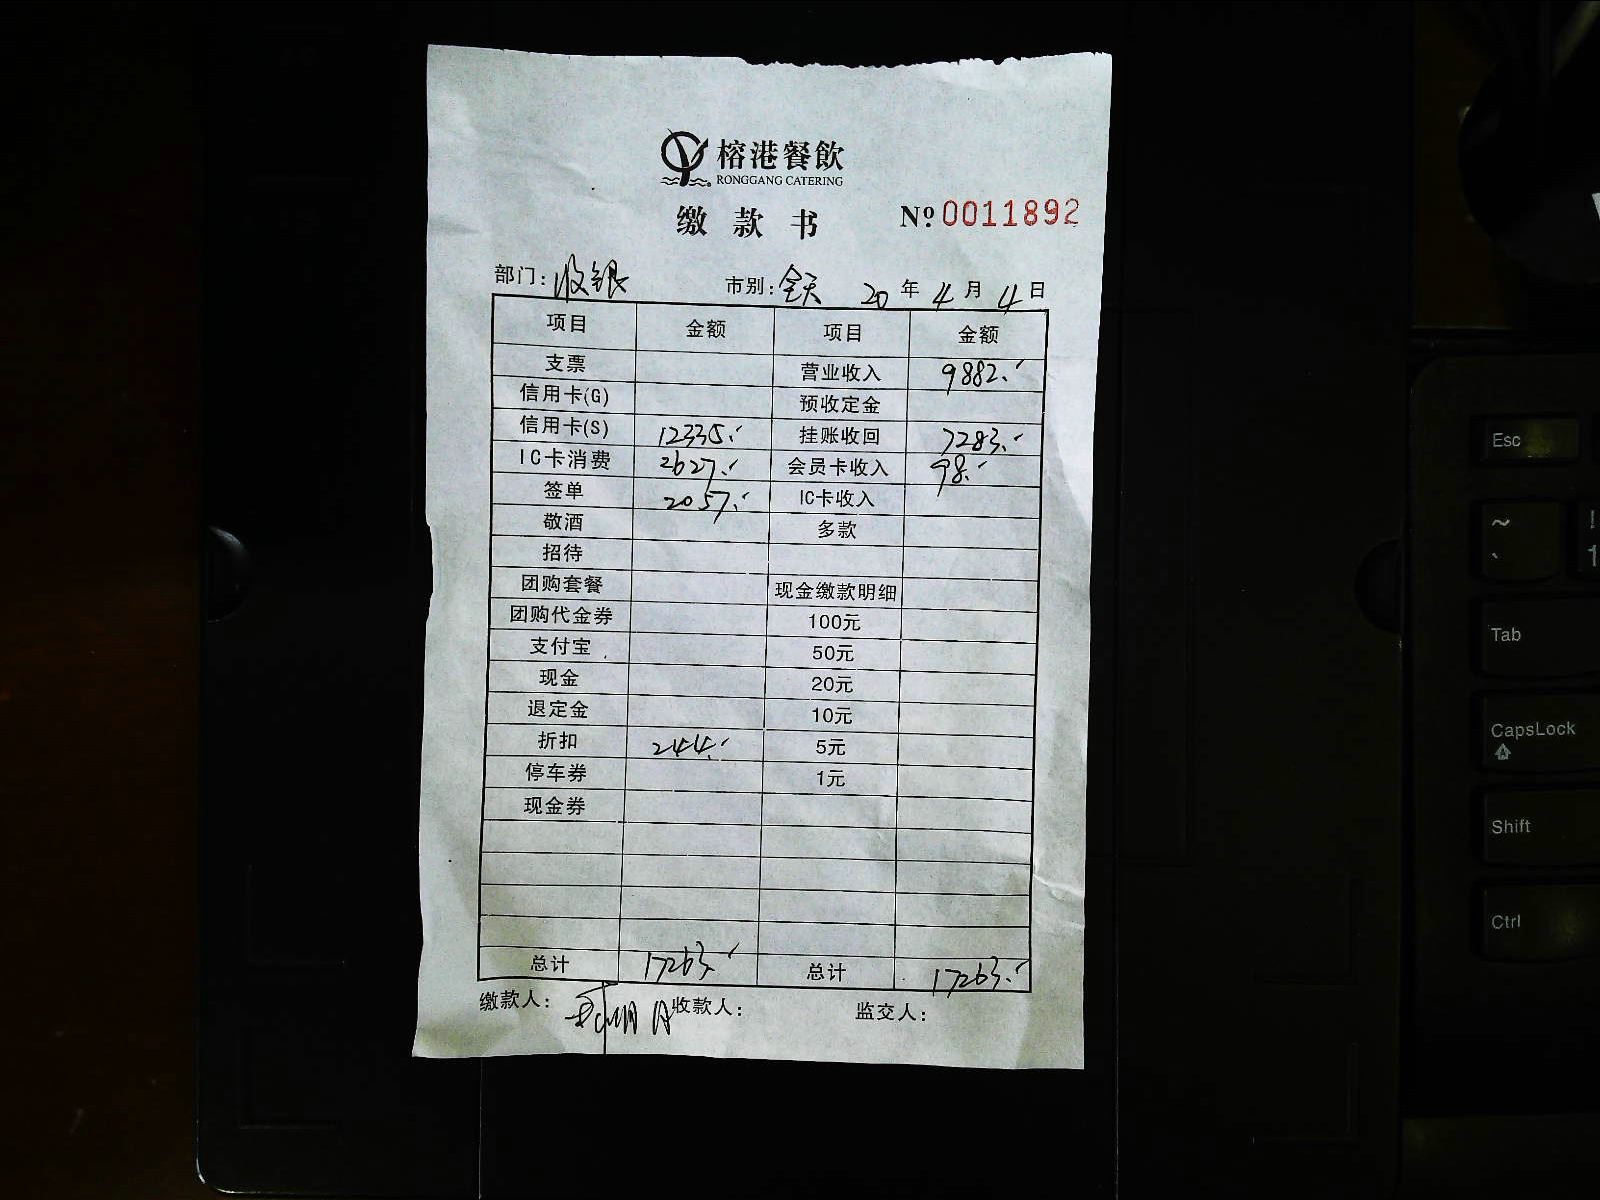 榕港餐飲
RONGGANG CATERING
缴款书 №0011892
部门: 收银 市别: 全天 20年4月4日
项目 金额 项目 金额
支票 营业收入 9882.
信用卡(G) 预收定金
信用卡(S) 12335. 挂账收回 7283.
IC卡消费 2627. 会员卡收入 98.
签单 2057. IC卡收入
敬酒 多款
招待
团购套餐 现金缴款明细
团购代金券 100元
支付宝 50元
现金 20元
退定金 10元
折扣 244. 5元
停车券 1元
现金券
总计 17263. 总计 17263.
缴款人: 明月 收款人: 监交人:
Esc
~
!
1
Tab
CapsLock
Shift
Ctrl